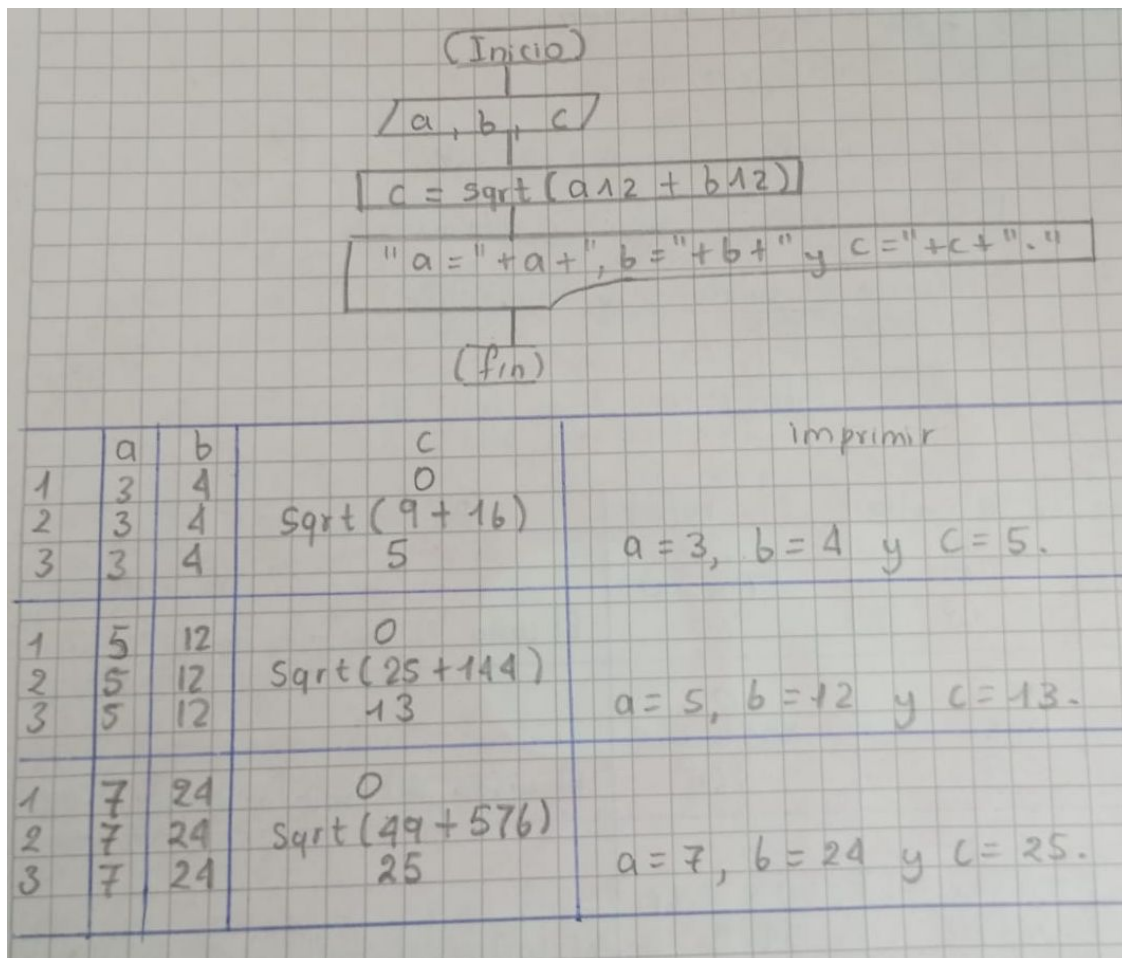 (Inicio)
a, b, c
c = sqrt(a^2 + b^2)
"a="+a+", b="+b+" y c="+c+"."
(fin)
a b c imprimir
1 3 4 0
2 3 4 sqrt(9+16)
3 3 4 5 a=3, b=4 y c=5.
1 5 12 0
2 5 12 sqrt(25+144)
3 5 12 13 a=5, b=12 y c=13.
1 7 24 0
2 7 24 sqrt(49+576)
3 7 24 25 a=7, b=24 y c=25.